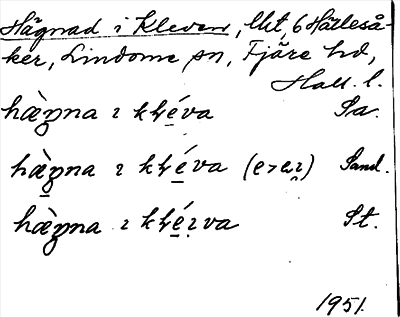 Hägnad i Kleven, Ukt, 6 Hälleså-
ker, Lindome sn, Fjäre hd,
Hall. l.
hæ̀gna ı klé̱va Sa.
hæ̱̀gna ı klé̱va (e > eı) Sand.
hæ̀gna ı klé̱ı̣va St.
1951.